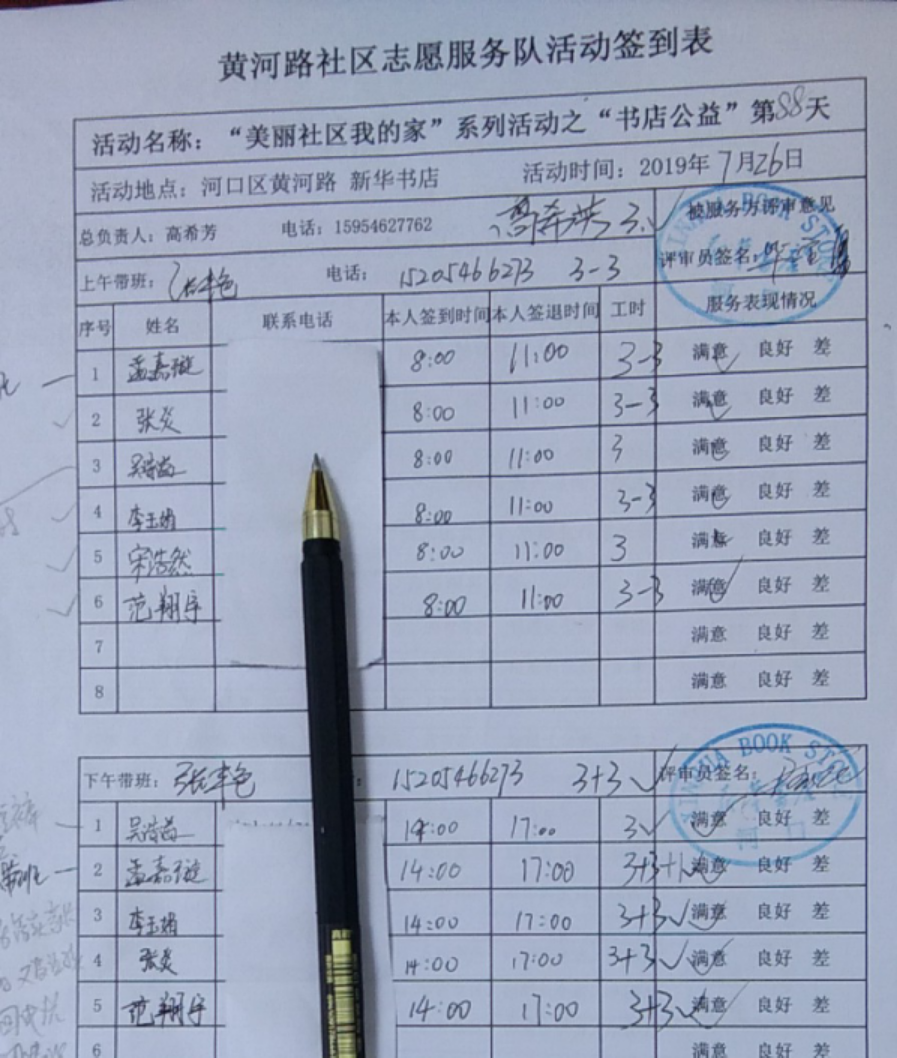 黄河路社区志愿服务队活动签到表
活动名称：“美丽社区我的家”系列活动之“书店公益”第88天
活动地点：河口区黄河路 新华书店 活动时间：2019年7月26日
总负责人：高希芳 电话：15954627762 高希芳 3 被服务方评审意见
上午带班： 电话：15205466273 3-3 评审员签名：
序号 姓名 联系电话 本人签到时间 本人签退时间 工时 服务表现情况
1 孟嘉璇 8:00 11:00 3-3 满意 良好 差
2 张炎 8:00 11:00 3-3 满意 良好 差
3 8:00 11:00 3 满意 良好 差
4 李玉娟 8:00 11:00 3-3 满意 良好 差
5 宋浩然 8:00 11:00 3 满意 良好 差
6 范翔宇 8:00 11:00 3-3 满意 良好 差
7 满意 良好 差
8 满意 良好 差
下午带班： : 15205466273 3+3 评审员签名：
1 14:00 17:00 3 满意 良好 差
2 孟嘉璇 14:00 17:00 3+3+1 满意 良好 差
3 李玉娟 14:00 17:00 3+3 满意 良好 差
4 张炎 14:00 17:00 3+3 满意 良好 差
5 范翔宇 14:00 17:00 3+3 满意 良好 差
6 满意 良好 差